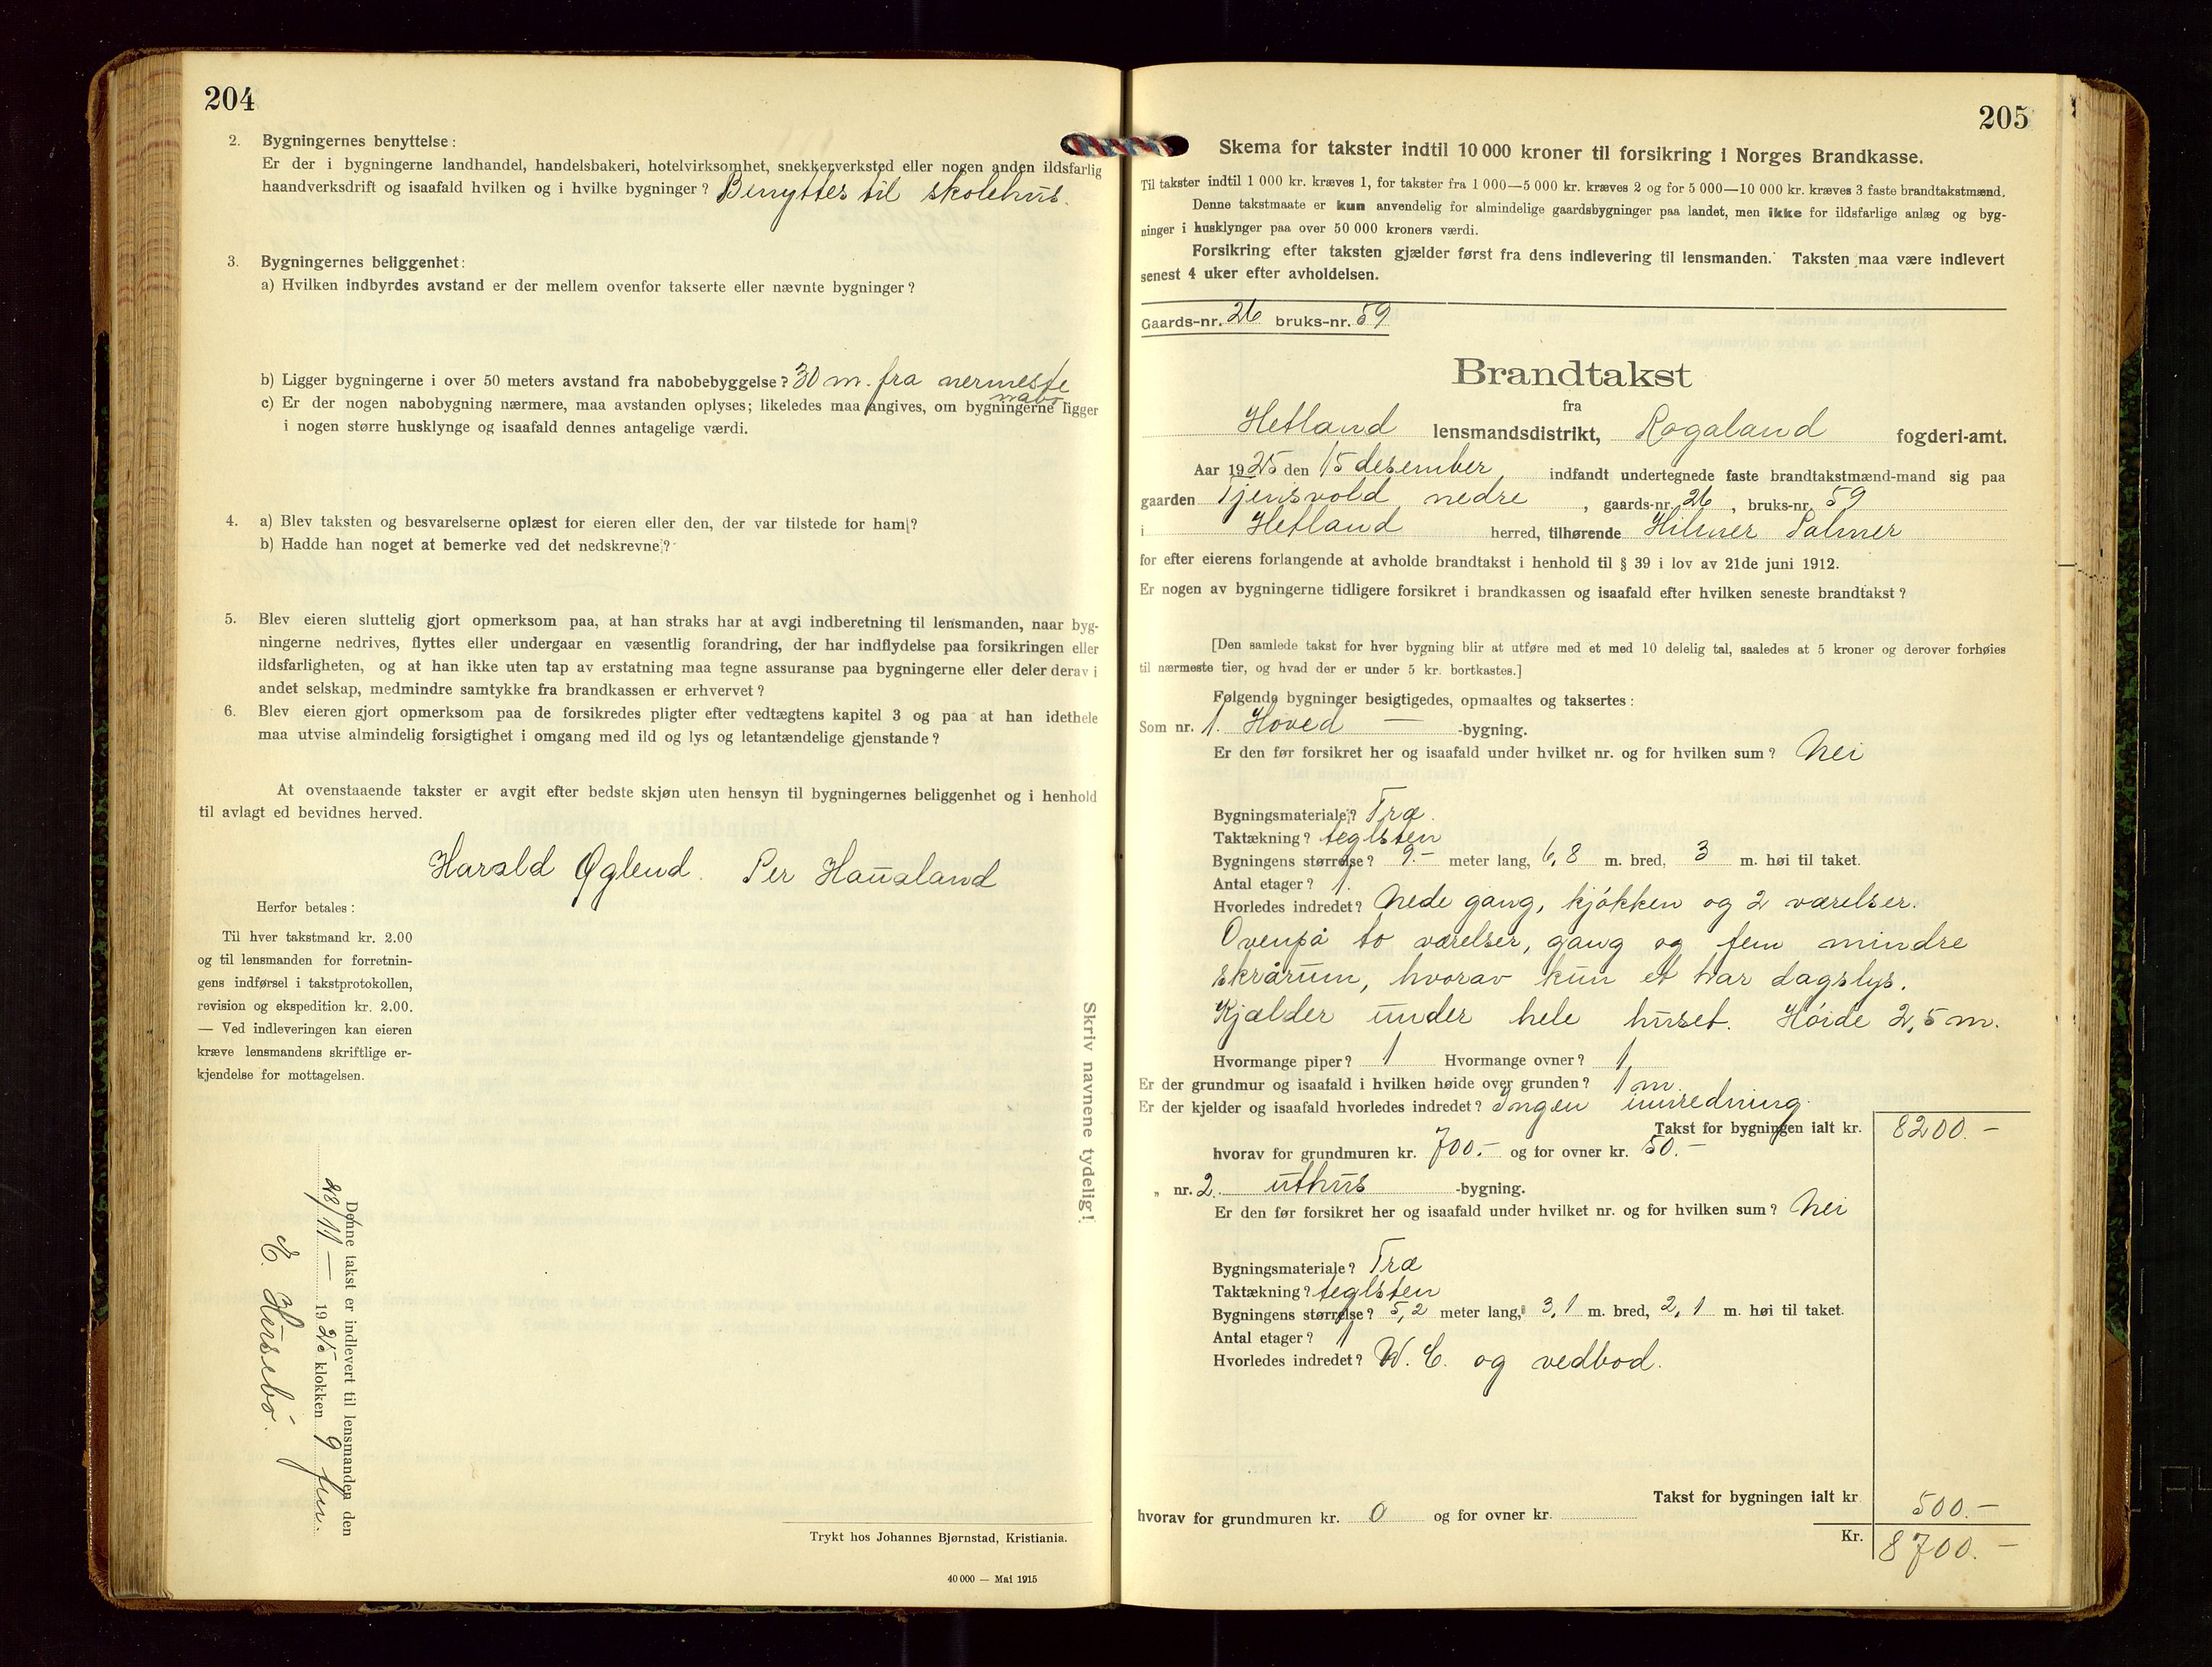 204
2. Bygningernes benyttelse:
Er der i bygningerne landhandel, handelsbakeri, hotelvirksomhet, snekkerverksted eller nogen anden ildsfarlig
haandverksdrift og isaafald hvilken og i hvilke bygninger? Benyttes til skolehus.
3. Bygningernes beliggenhet:
a) Hvilken indbyrdes avstand er der mellem ovenfor takserte eller nævnte bygninger?
b) Ligger bygningerne i over 50 meters avstand fra nabobebyggelse? 30 m. fra nermeste
nabo
c) Er der nogen nabobygning nærmere, maa avstanden oplyses; likeledes maa angives, om bygningerne ligger
i nogen større husklynge og isaafald dennes antagelige værdi.
4. a) Blev taksten og besvarelserne oplæst for eieren eller den, der var tilstede for ham?
b) Hadde han noget at bemerke ved det nedskrevne?
5. Blev eieren sluttelig gjort opmerksom paa, at han straks har at avgi indberetning til lensmanden, naar byg-
ningerne nedrives, flyttes eller undergaar en væsentlig forandring, der har indflydelse paa forsikringen eller
ildsfarligheten, og at han ikke uten tap av erstatning maa tegne assuranse paa bygningerne eller deler derav i
andet selskap, medmindre samtykke fra brandkassen er erhvervet?
6. Blev eieren gjort opmerksom paa de forsikredes pligter efter vedtægtens kapitel 3 og paa at han idethele
maa utvise almindelig forsigtighet i omgang med ild og lys og letantændelige gjenstande?
At ovenstaaende takster er avgit efter bedste skjøn uten hensyn til bygningernes beliggenhet og i henhold
til avlagt ed bevidnes herved.
Harald Øglend. Per Haualand
Herfor betales:
Til hver takstmand kr. 2.00
og til lensmanden for forretnin-
gens indførsel i takstprotokollen,
revision og ekspedition kr. 2.00.
— Ved indleveringen kan eieren
kræve lensmandens skriftlige er-
kjendelse for mottagelsen.
Skriv navnene tydelig!
Denne takst er indlevert til lensmanden den
28/11 — 1925 klokken 9 fm.
E. Husebø.
Trykt hos Johannes Bjørnstad, Kristiania.
40 000 — Mai 1915
205
Skema for takster indtil 10 000 kroner til forsikring i Norges Brandkasse.
Til takster indtil 1 000 kr. kræves 1, for takster fra 1 000—5 000 kr. kræves 2 og for 5 000—10 000 kr. kræves 3 faste brandtakstmænd.
Denne takstmaate er kun anvendelig for almindelige gaardsbygninger paa landet, men ikke for ildsfarlige anlæg og byg-
ninger i husklynger paa over 50 000 kroners værdi.
Forsikring efter taksten gjælder først fra dens indlevering til lensmanden. Taksten maa være indlevert
senest 4 uker efter avholdelsen.
Gaards-nr. 26 bruks-nr. 59
Brandtakst
fra
Hetland lensmandsdistrikt, Rogaland fogderi-amt.
Aar 1925 den 15 desember indfandt undertegnede faste brandtakstmænd-mand sig paa
gaarden Tjensvold nedre, gaards-nr. 26, bruks-nr. 59
i Hetland herred, tilhørende Hilmer Salmer
for efter eierens forlangende at avholde brandtakst i henhold til § 39 i lov av 21de juni 1912.
Er nogen av bygningerne tidligere forsikret i brandkassen og isaafald efter hvilken seneste brandtakst?
[Den samlede takst for hver bygning blir at utføre med et med 10 delelig tal, saaledes at 5 kroner og derover forhøies
til nærmeste tier, og hvad der er under 5 kr. bortkastes.]
Følgende bygninger besigtigedes, opmaaltes og taksertes:
Som nr. 1. Hoved — -bygning.
Er den før forsikret her og isaafald under hvilket nr. og for hvilken sum? Nei
Bygningsmateriale? Træ.
Taktækning? teglsten
Bygningens størrelse? 9.- meter lang, 6,8 m. bred, 3 m. høi til taket.
Antal etager? 1.
Hvorledes indredet? Nede gang, kjøkken og 2 værelser.
Ovenpå to værelser, gang og fem mindre
skrårum, hvorav kun et har dagslys.
Kjælder under hele huset. Høide 2,5 m.
Hvormange piper? 1 Hvormange ovner? 1
Er der grundmur og isaafald i hvilken høide over grunden? 1 m.
Er der kjelder og isaafald hvorledes indredet? Ingen innredning.
Takst for bygningen ialt kr. 8200.—
hvorav for grundmuren kr. 700.- og for ovner kr. 50.-
„ nr. 2. uthus -bygning.
Er den før forsikret her og isaafald under hvilket nr. og for hvilken sum? Nei
Bygningsmateriale? Træ
Taktækning? teglsten
Bygningens størrelse? 5,2 meter lang, 3,1 m. bred, 2,1 m. høi til taket.
Antal etager? 1
Hvorledes indredet? W. C. og vedbod.
Takst for bygningen ialt kr 500.—
hvorav for grundmuren kr. 0 og for ovner kr.
Kr. 8700.—